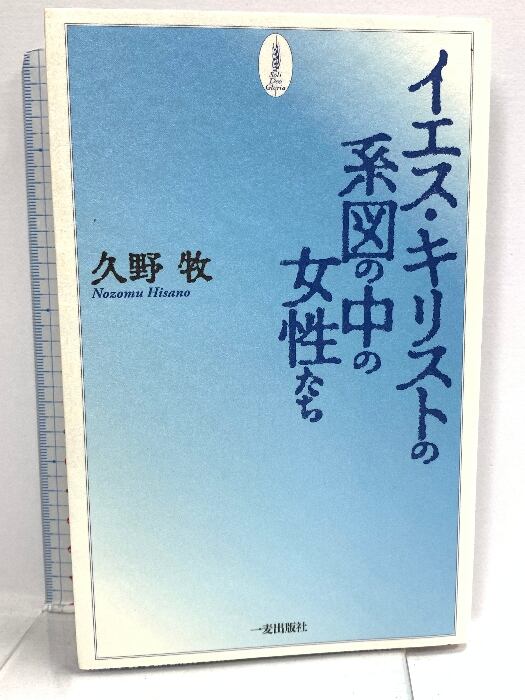 Soli
Deo
Gloria
イエス・キリストの
系図の中の
女性たち
久野 牧
Nozomu Hisano
一麦出版社